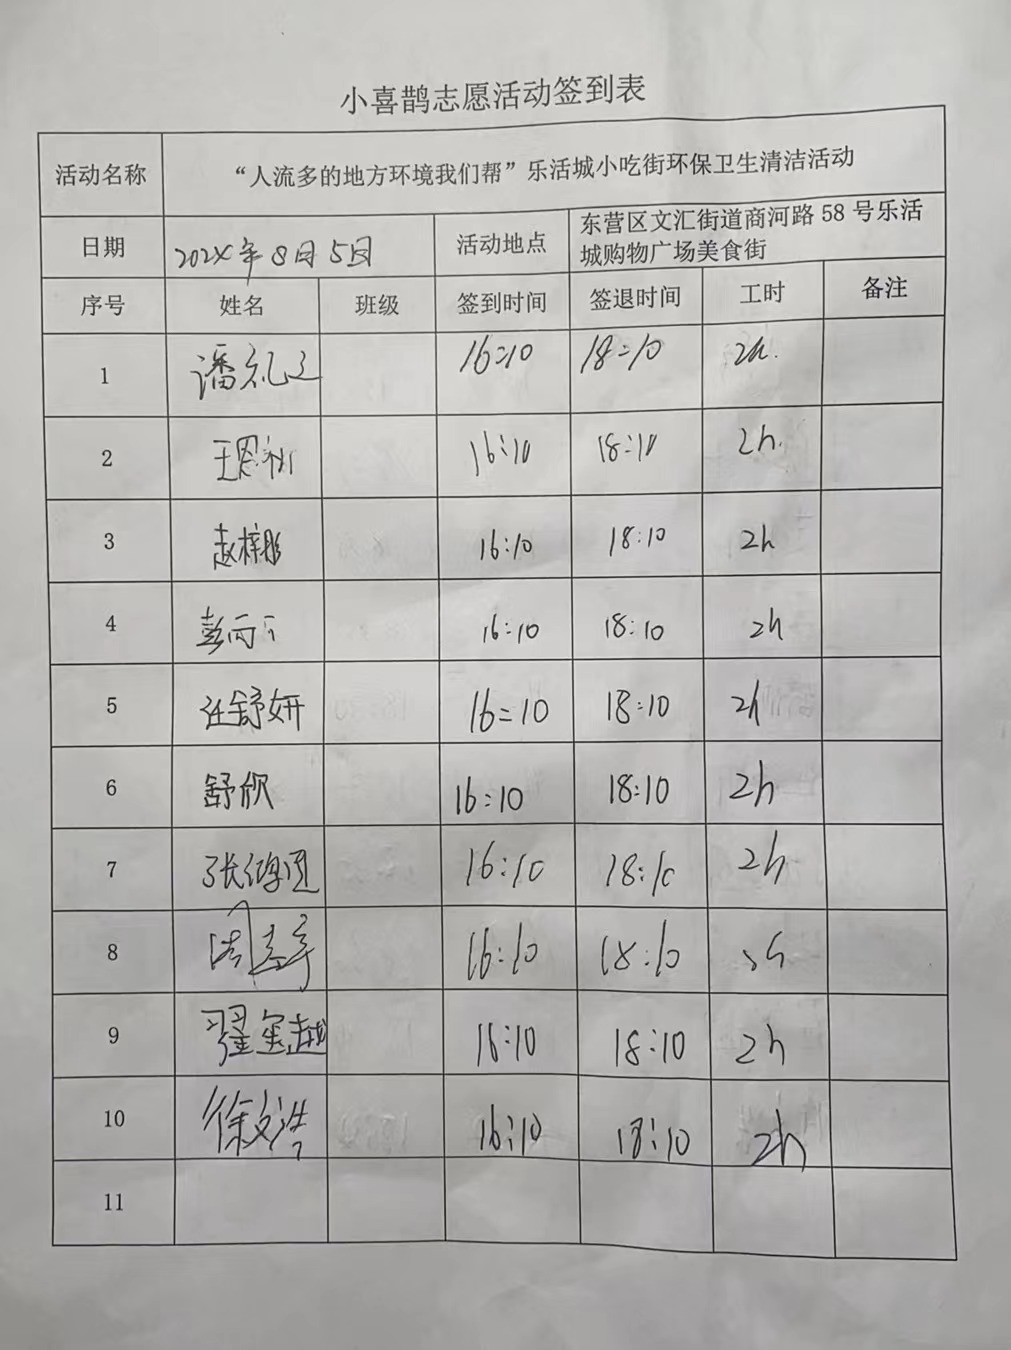 小喜鹊志愿活动签到表
活动名称 “人流多的地方环境我们帮”乐活城小吃街环保卫生清洁活动
日期 2024年8月5日 活动地点 东营区文汇街道商河路 58 号乐活
城购物广场美食街
序号 姓名 班级 签到时间 签退时间 工时 备注
1 潘礼 16:10 18:10 2h.
2 王恩 16:10 18:10 2h.
3 赵梓彤 16:10 18:10 2h
4 彭雨 16:10 18:10 2h
5 汪舒妍 16:10 18:10 2h
6 舒欣 16:10 18:10 2h
7 张 16:10 18:10 2h
8 16:10 18:10
9 翟金越 16:10 18:10 2h
10 徐文浩 16:10 18:10 2h
11